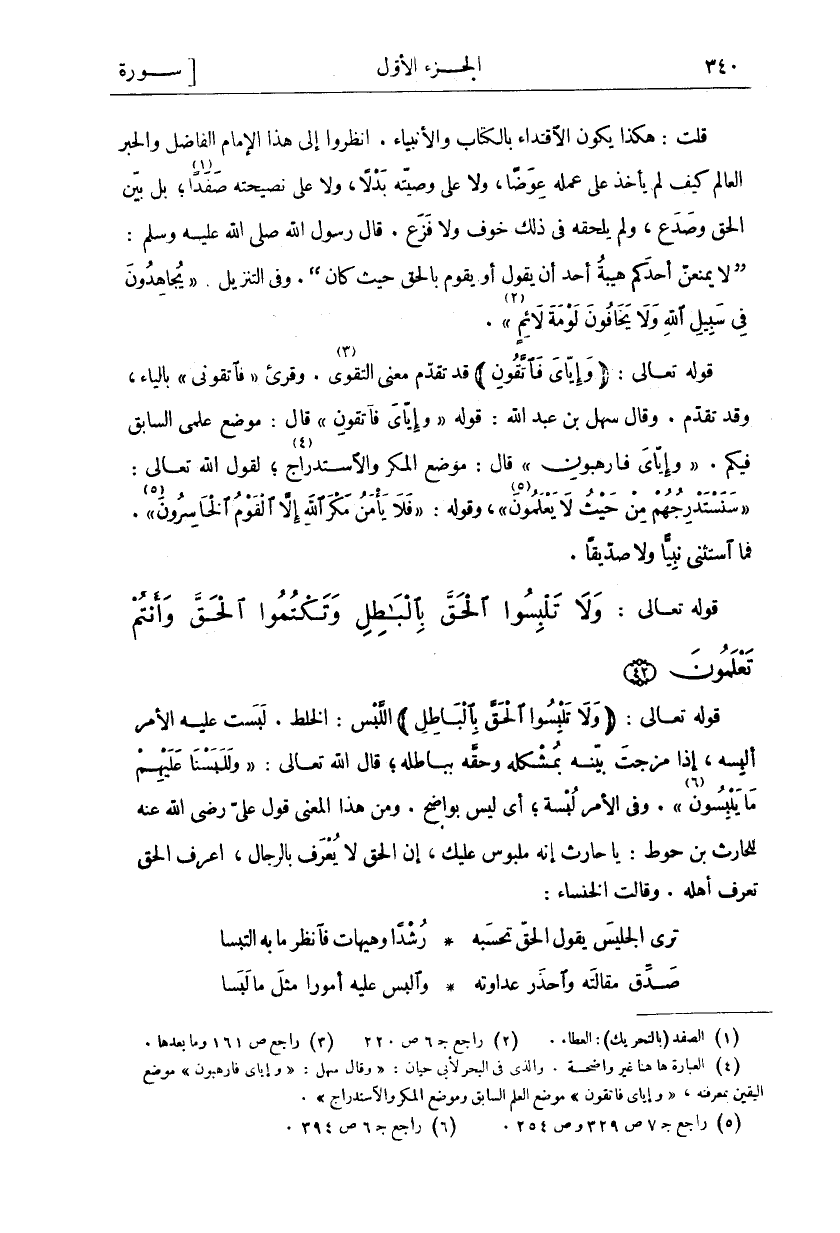 ٣٤٠ الجــزء الأوّل [ ســورة
قلت : هكذا يكون الاقتداء بالكتاب والأنبياء . انظروا إلى هذا الإمام الفاضل والحبر
العالم كيف لم يأخذ على عمله عِوَضًا ، ولا على وصيّته بَدْلًا ، ولا على نصيحته صَفَدًا (١) ؛ بل بيّن
الحق وصَدَع ، ولم يلحقه فى ذلك خوف ولا فَزَع . قال رسول الله صلى الله عليـه وسلم :
”لا يمنعنّ أحدَكم هيبةُ أحد أن يقول أو يقوم بالحق حيث كان“ . وفى التنزيل . « يُجاهِدُونَ
فِى سَبِيلِ ٱللهِ وَلَا يَخَافُونَ لَوْمَةَ لَائِمٍ (٢) » .
قوله تعـالى : ﴿ وَإِيَّاىَ فَٱتَّقُونِ ﴾ قد تقدّم معنى التقوى (٣) . وقرئ « فٱتقونى » بالياء ،
وقد تقدّم . وقال سهل بن عبد الله : قوله « وإيّاىَ فٱتقونِ » قال : موضع علمى السابق
فيكم . « وإيّاىَ فـارهبونِ » قال : موضع المكر والاستدراج (٤) ؛ لقول الله تعـالى :
«سَنَسْتَدْرِجُهُمْ مِنْ حَيْثُ لَا يَعْلَمُونَ (٥)» ، وقوله : «فَلَا يَأْمَنُ مَكْرَ ٱللَّهِ إِلَّا ٱلْقَوْمُ ٱلْخَاسِرُونَ (٥)» .
فما ٱستثنى نبيًّا ولا صدّيقًا .
قوله تعـالى : وَلَا تَلْبِسُوا ٱلْحَقَّ بِٱلْبَـٰطِلِ وَتَكْتُمُوا ٱلْحَقَّ وَأَنتُمْ
تَعْلَمُونَ ٤٢
قوله تعـالى : ﴿ وَلَا تَلْبِسُوا ٱلْحَقَّ بِٱلْبَـاطِلِ ﴾ اللَّبْس : الخلط . لَبَست عليـه الأمر
ألبِسه ، إذا مزجتَ بيّنـه بمُشْكِله وحقَّه ببـاطله ؛ قال الله تعـالى : « وَلَلَبَسْنَا عَلَيْهِـمْ
مَا يَلْبِسُونَ (٦) » . وفى الأمر لُبْسة ؛ أى ليس بواضح . ومن هذا المعنى قول علىّ رضى الله عنه
للحارث بن حوط : يا حارث إنه ملبوس عليك ، إن الحق لا يُعْرَف بالرجال ، اعرف الحق
تعرف أهله . وقالت الخنساء :
ترى الجليسَ يقول الحقّ تحسَبه * رُشْدًا وهيهات فٱنظر ما به التبسا
صَـدِّق مقالتَه وٱحذَر عداوته * وٱلبس عليه أمورا مثلَ ما لَبَسا
(١) الصفد (بالتحريك) : العطاء . (٢) راجع جـ ٦ ص ٢٢٠ (٣) راجع ص ١٦١ وما بعدها .
(٤) العبارة ها هنا غير واضحـة . والذى فى البحر لأبى حيان : « وقال سهل : « وإياى فارهبون » موضع
اليقين بمعرفته ، « وإياى فاتقون » موضع العلم السابق وموضع المكر والاستدراج » .
(٥) راجع جـ ٧ ص ٣٢٩ وص ٢٥٤ . (٦) راجع جـ ٦ ص ٣٩٤ .